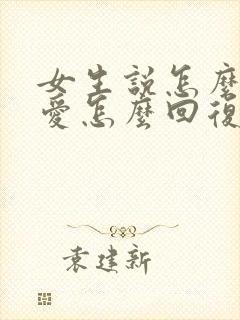 女生說怎麼
愛怎麼回復
袁建新